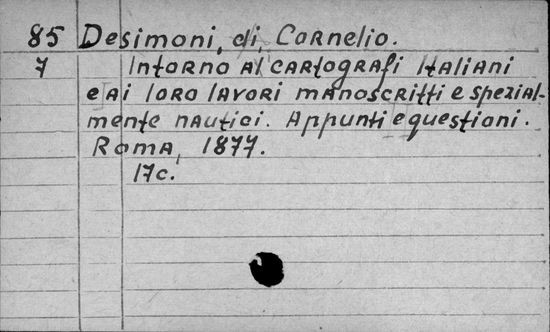 85 Desimoni, di, Cornelio.
7 Intorno ai cartografi Italiani
e ai loro lavori manoscritti e spezial-
mente nautici. Appunti e questioni.
Roma, 1877.
17c.